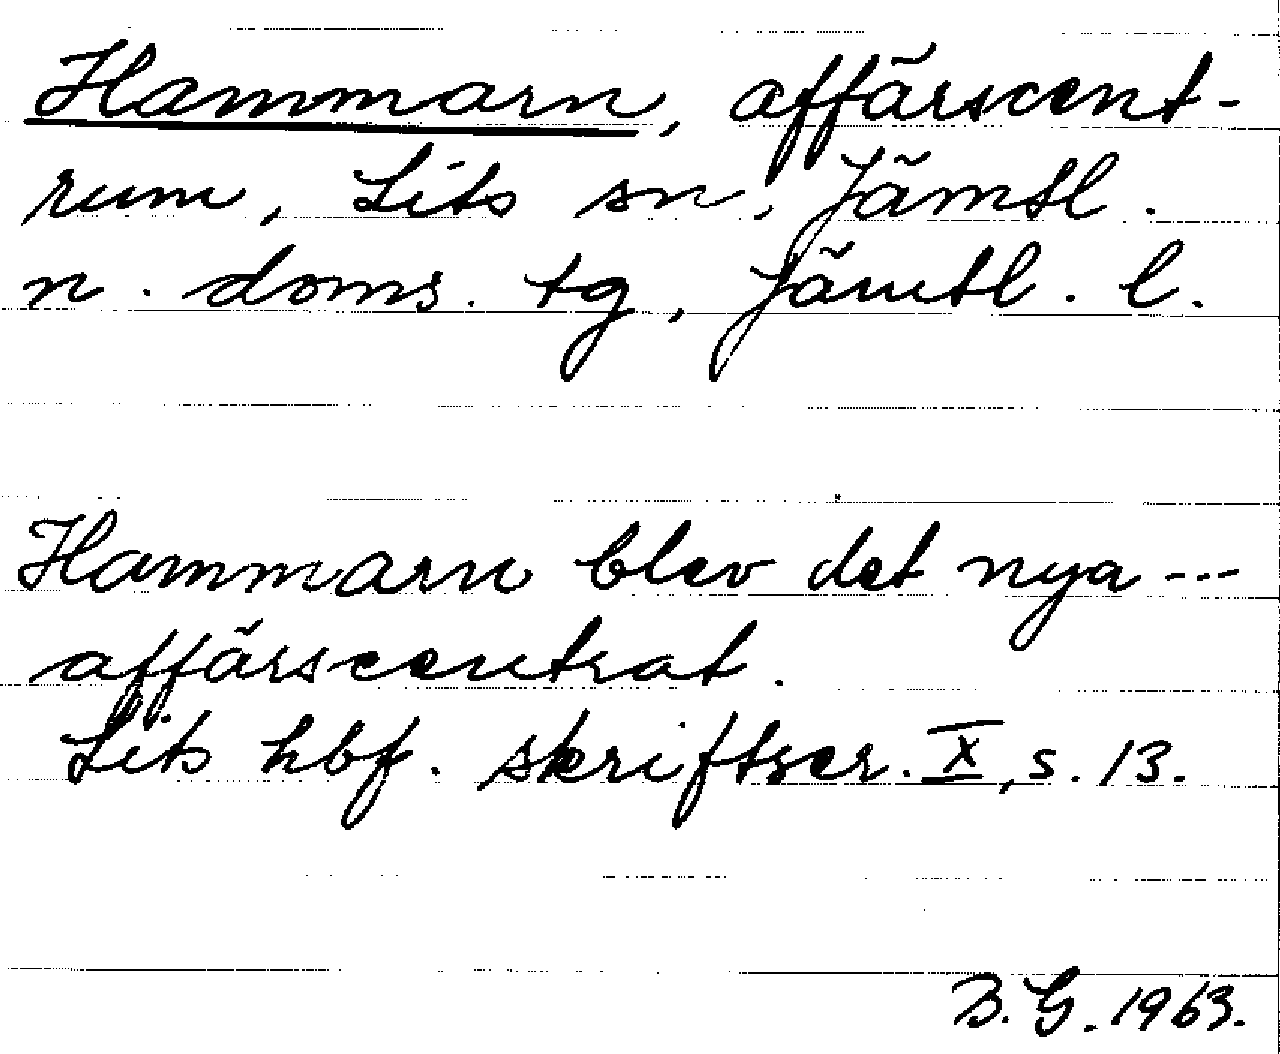 Hammarn, affärscent-
rum, Lits sn, Jämtl.
n. doms. tg, Jämtl. l.
Hammarn blev det nya ---
affärscentrat.
Lits hbf. skriftser. X, s. 13.
B. G. 1963.